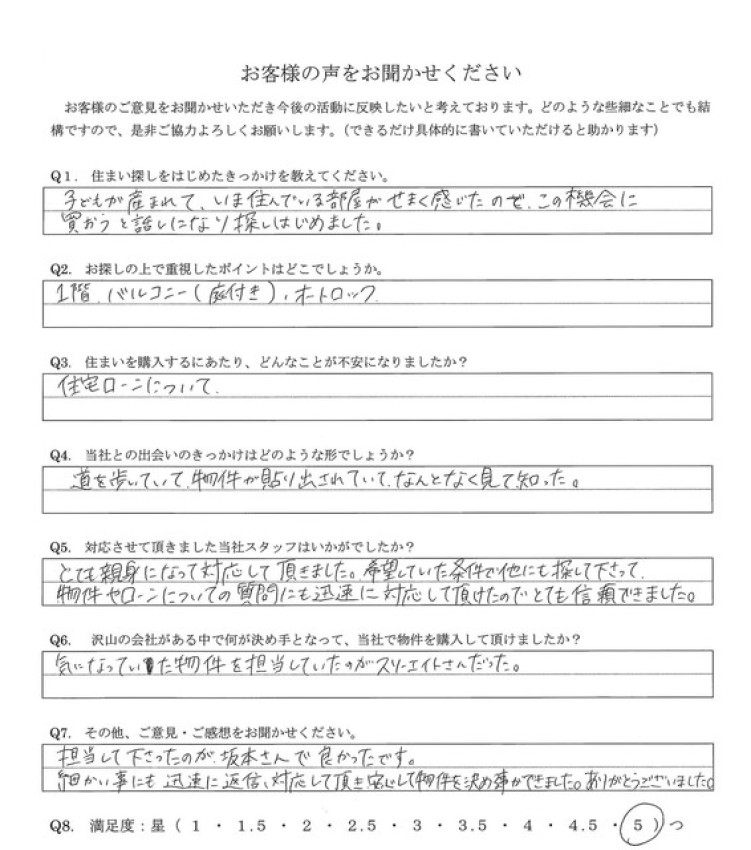 お客様の声をお聞かせください
お客様のご意見をお聞かせいただき今後の活動に反映したいと考えております。どのような些細なことでも結
構ですので、是非ご協力よろしくお願いします。（できるだけ具体的に書いていただけると助かります）
Q1. 住まい探しをはじめたきっかけを教えてください。
子どもが産まれて、いま住んでいる部屋がせまく感じたので、この機会に
買おうと話しになり探しはじめました。
Q2. お探しの上で重視したポイントはどこでしょうか。
1階、バルコニー(庭付き)、オートロック
Q3. 住まいを購入するにあたり、どんなことが不安になりましたか？
住宅ローンについて.
Q4. 当社との出会いのきっかけはどのような形でしょうか？
道を歩いていて、物件が貼り出されていて、なんとなく見て知った。
Q5. 対応させて頂きました当社スタッフはいかがでしたか？
とても親身になって対応して頂きました。希望していた条件で他にも探して下さって、
物件やローンについての質問にも迅速に対応して頂けたのでとても信頼できました。
Q6. 沢山の会社がある中で何が決め手となって、当社で物件を購入して頂けましたか？
気になっていた物件を担当していたのがスリーエイトさんだった。
Q7. その他、ご意見・ご感想をお聞かせください。
担当して下さったのが、坂本さんで良かったです。
細かい事にも迅速に返信、対応して頂き安心して物件を決め事ができました。ありがとうございました。
Q8. 満足度：星（ 1 ・ 1.5 ・ 2 ・ 2.5 ・ 3 ・ 3.5 ・ 4 ・ 4.5 ・ 5 ）つ